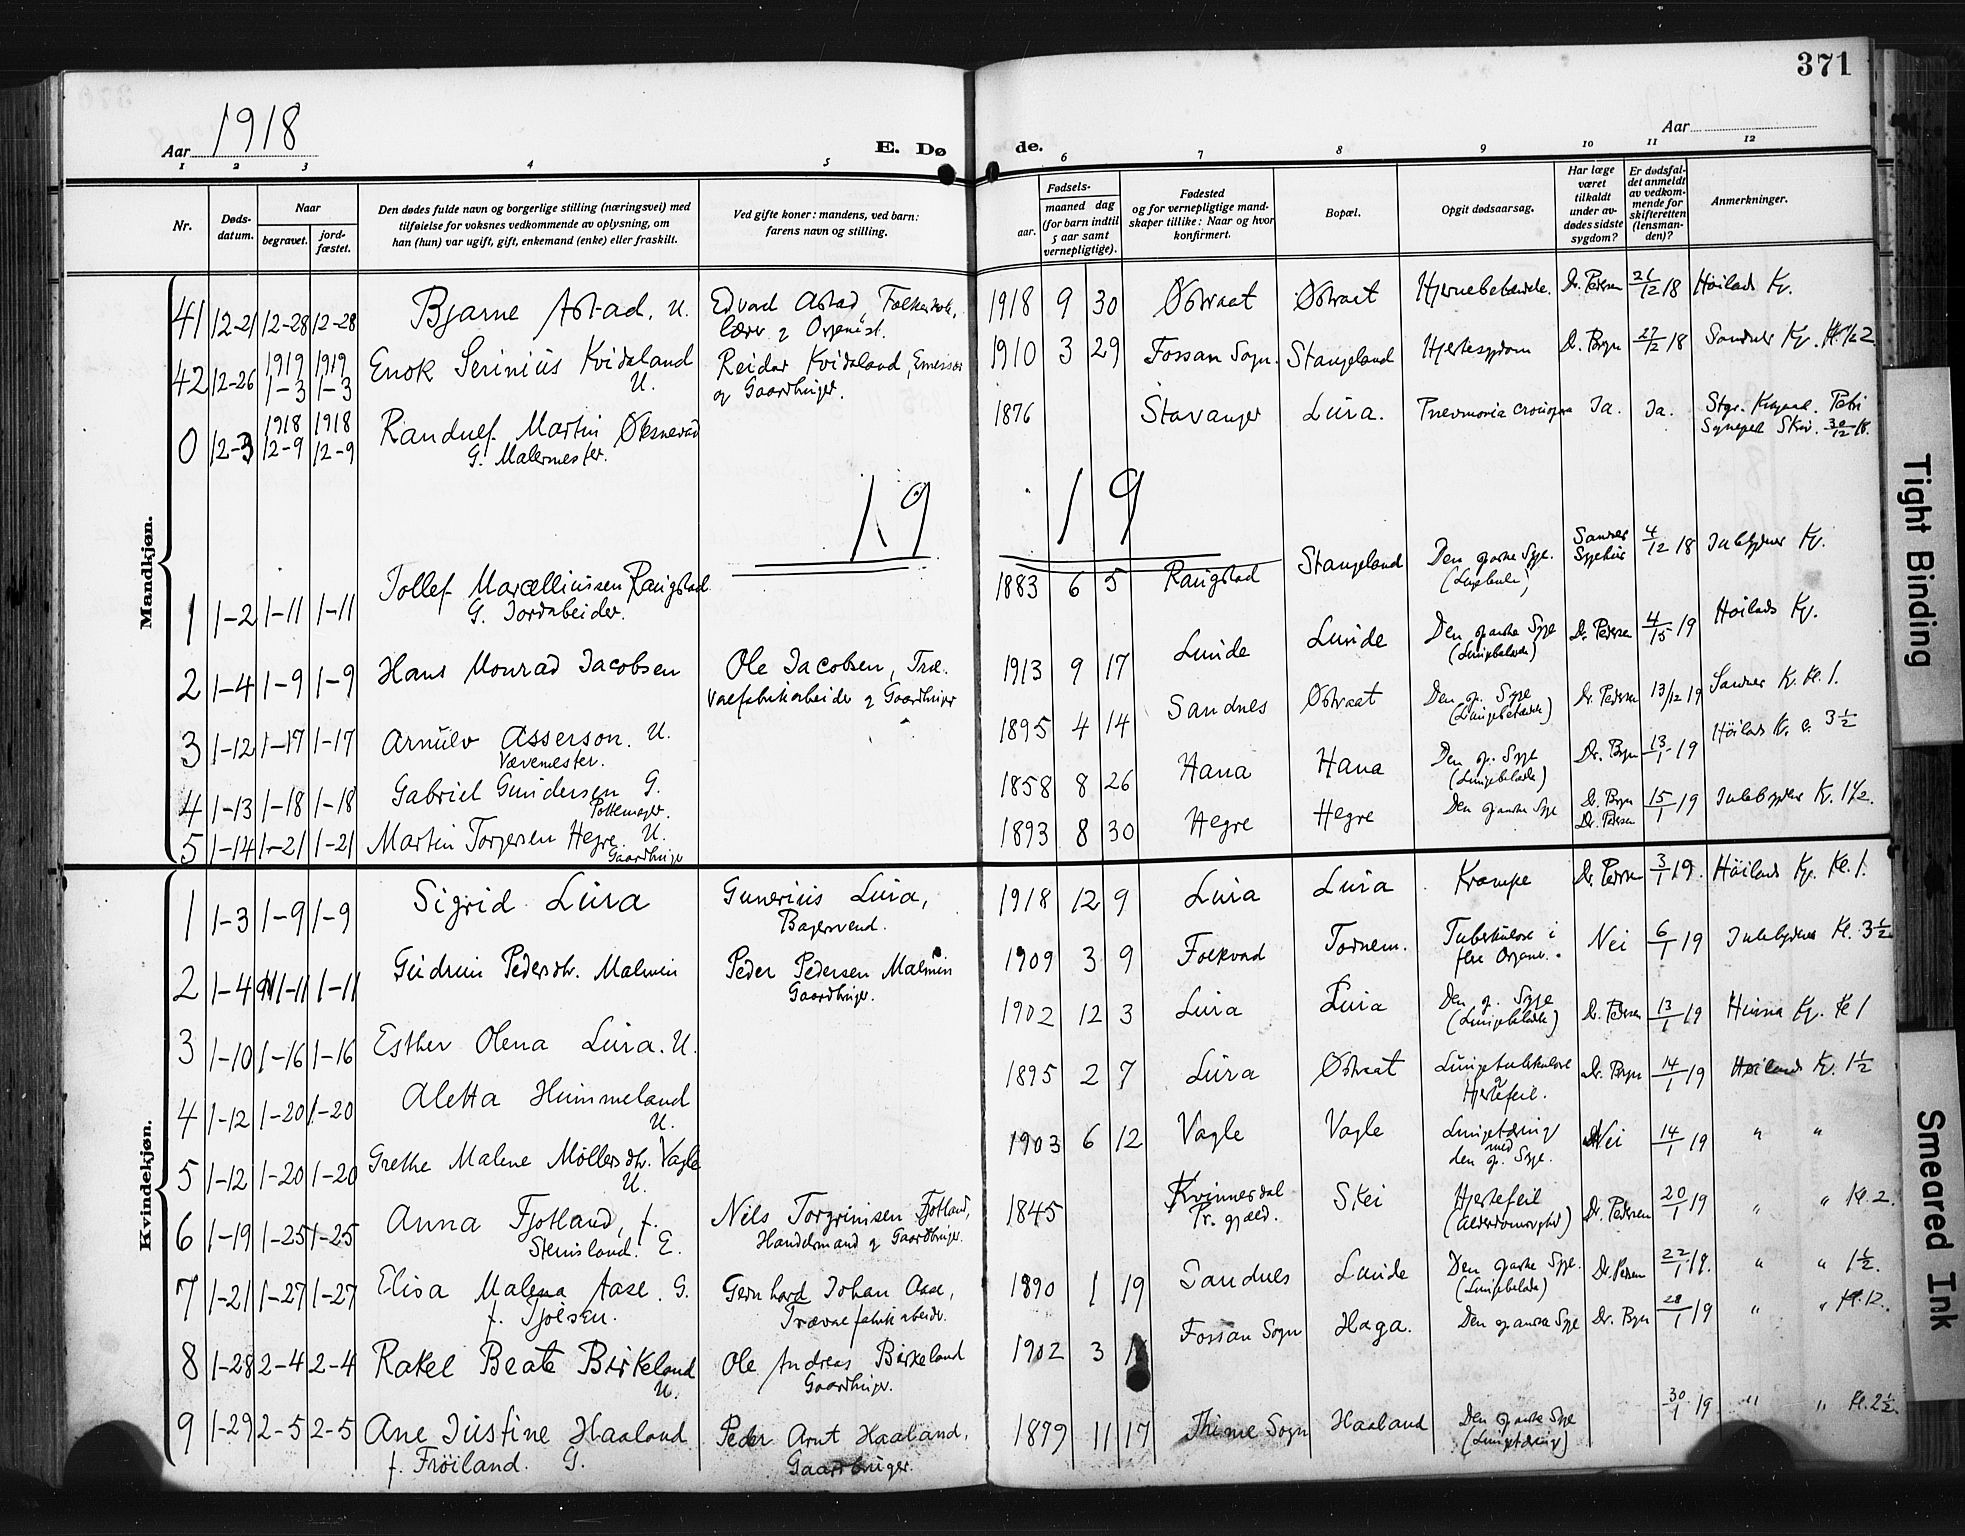 371
Aar 1918
E. Dø
de.
Aar
1 2 3 4 5 6 7 8 9 10 11 12
Nr.
Døds-
datum.
Naar
begravet.
jord-
fæstet.
Den dødes fulde navn og borgerlige stilling (næringsvei) med
tilføielse for voksnes vedkommende av oplysning, om
han (hun) var ugift, gift, enkemand (enke) eller fraskilt.
Ved gifte koner: mandens, ved barn:
farens navn og stilling.
Fødsels-
aar.
maaned dag
(for barn indtil
5 aar samt
vernepligtige).
Fødested
og for vernepligtige mand-
skaper tillike: Naar og hvor
konfirmert.
Bopæl.
Opgit dødsaarsag.
Har læge
været
tilkaldt
under av-
dødes sidste
sygdom?
Er dødsfal-
det anmeldt
av vedkom-
mende for
skifteretten
(lensman-
den)?
Anmerkninger.
Mandkjøn.
41 12-21 12-28 12-28 Bjarne Astad. U. Edvard Astad, Folkeskole,
lærer og Organist. 1918 9 30 Østraat Østraat Hjernebetændelse. Dr. Pedersen 21/12 18 Høilands Kr.
42 12-26 1919 1-3 1919 1-3 Enok Serinius Kvidaland
U. Reidar Kvidaland, Emisær
og Gaardbruger. 1910 3 29 Fossan Sogn. Stangeland Hjertesygdom Dr. Bryn 27/12 18 Sandnes Kr. Kl. 1/2 2
0 12-3 1918 12-9 1918 12-9 Randulf Martin Øksnevad
G. Malermester. 1876 Stavanger Lura. Pneumonia crouposa Ja. Ja. Stgr. Kapel. Petri
30/12 18.
19 19
1 1-2 1-11 1-11 Tollef Marcelliussen Raugstad
G. Jordarbeider. 1883 6 5 Raugstad Stangeland Den spanske Syge.
Sandnes
Sygehus 4/12 18 Julebygdens Kr.
2 1-4 1-9 1-9 Hans Monrad Jacobsen Ole Jacobsen, Træ-
varefabrikarbeider og Gaardbruger 1913 9 17 Lunde Lunde Den spanske Syge
(Lungebetænd.) Dr. Pedersen 4/15 19 Høilands Kr.
3 1-12 1-17 1-17 Arnulv Asserson. U.
Vævemester. 1895 4 14 Sandnes Østraat Den sp. Syge
(Lungebetænde) Dr. Pedersen 13/12 19 Sandnes K. Kl. 1.
4 1-13 1-18 1-18 Gabriel Gundersen G.
Pottemager. 1858 8 26 Hana Hana Den sp. Syge
(Lungebetænde) Dr. Bryn 13/1 19 Höilands K. c. 3 1/2
5 1-14 1-21 1-21 Martin Torgersen Hegre. U.
Gaardbruger 1893 8 30 Hegre Hegre Den spanske Syge Dr. Bryn
Dr. Pedersen 15/1 19 Julebygdens Kr. 1 1/2.
Kvindekjøn.
1 1-3 1-9 1-9 Sigrid Lura Gunerius Lura,
Bagersvend. 1918 12 9 Lura Lura Krampe Dr. Pedersen 3/1 19. Höilands Kr. Kl. 1.
2 1-4 1-11 1-11 Gudrun Pedersdtr. Malmin Peder Pedersen Malmin
Gaardbruger. 1909 3 9 Folkvord Tornem. Tuberkulose i
flere Organer. Nei 6/1 19 Julebygdens Kl. 3 1/2
3 1-10 1-16 1-16 Esther Olena Lura. U. 1902 12 3 Lura Lura Den sp. Syge
(Lungebetænde) Dr. Pedersen 13/1 19 Hinna Kr. Kl 1
4 1-12 1-20 1-20 Aletta Hummeland
U. 1895 2 7 Lura Østraat Lungetuberkulose
og
Hjertefeil. Dr. Bryn 14/1 19 Høilands Kr. 1 1/2
5 1-12 1-20 1-20 Grethe Malene Möllersdtr. Vagle
U. 1903 6 12 Vagle Vagle Lungetæring
med
den sp. Syge. Nei 14/1 19 " "
6 1-19 1-25 1-25 Anna Fjotland, f.
Stensland. E. Nils Torgrimsen Fjotland,
Handelsmand og Gaardbruger. 1845 Kvinnesdal
Pr. gjeld. Skei Hjertefeil
(Alderdomssvaghed) Dr. Pedersen 20/1 19 " " Kl. 2.
7 1-21 1-27 1-27 Elisa Malena Aase. G.
f. Tjölsen. Gernhard Johan Aase,
Trævarefabrikarbeider. 1890 1 19 Sandnes Lunde Den spanske Syge.
(Lungebetænde) Dr. Pedersen 22/1 19. " " 1 1/2.
8 1-28 2-4 2-4 Rakel Beate Birkeland
U. Ole Andreas Birkeland
Gaardbruger. 1902 3 Fossan Sogn Haga. Den spanske Syge Dr. Bryn 28/1 19 " " Kl. 12.
9 1-29 2-5 2-5 Ane Justine Haaland
f. Fröiland. G. Peder Arnt Haaland,
Gaardbruger. 1879 11 17 Thime Sogn Haaland Den spanske Syge
(Lungetæring) 30/1 19 " " Kl. 2 1/2.
Tight Binding
Smeared Ink